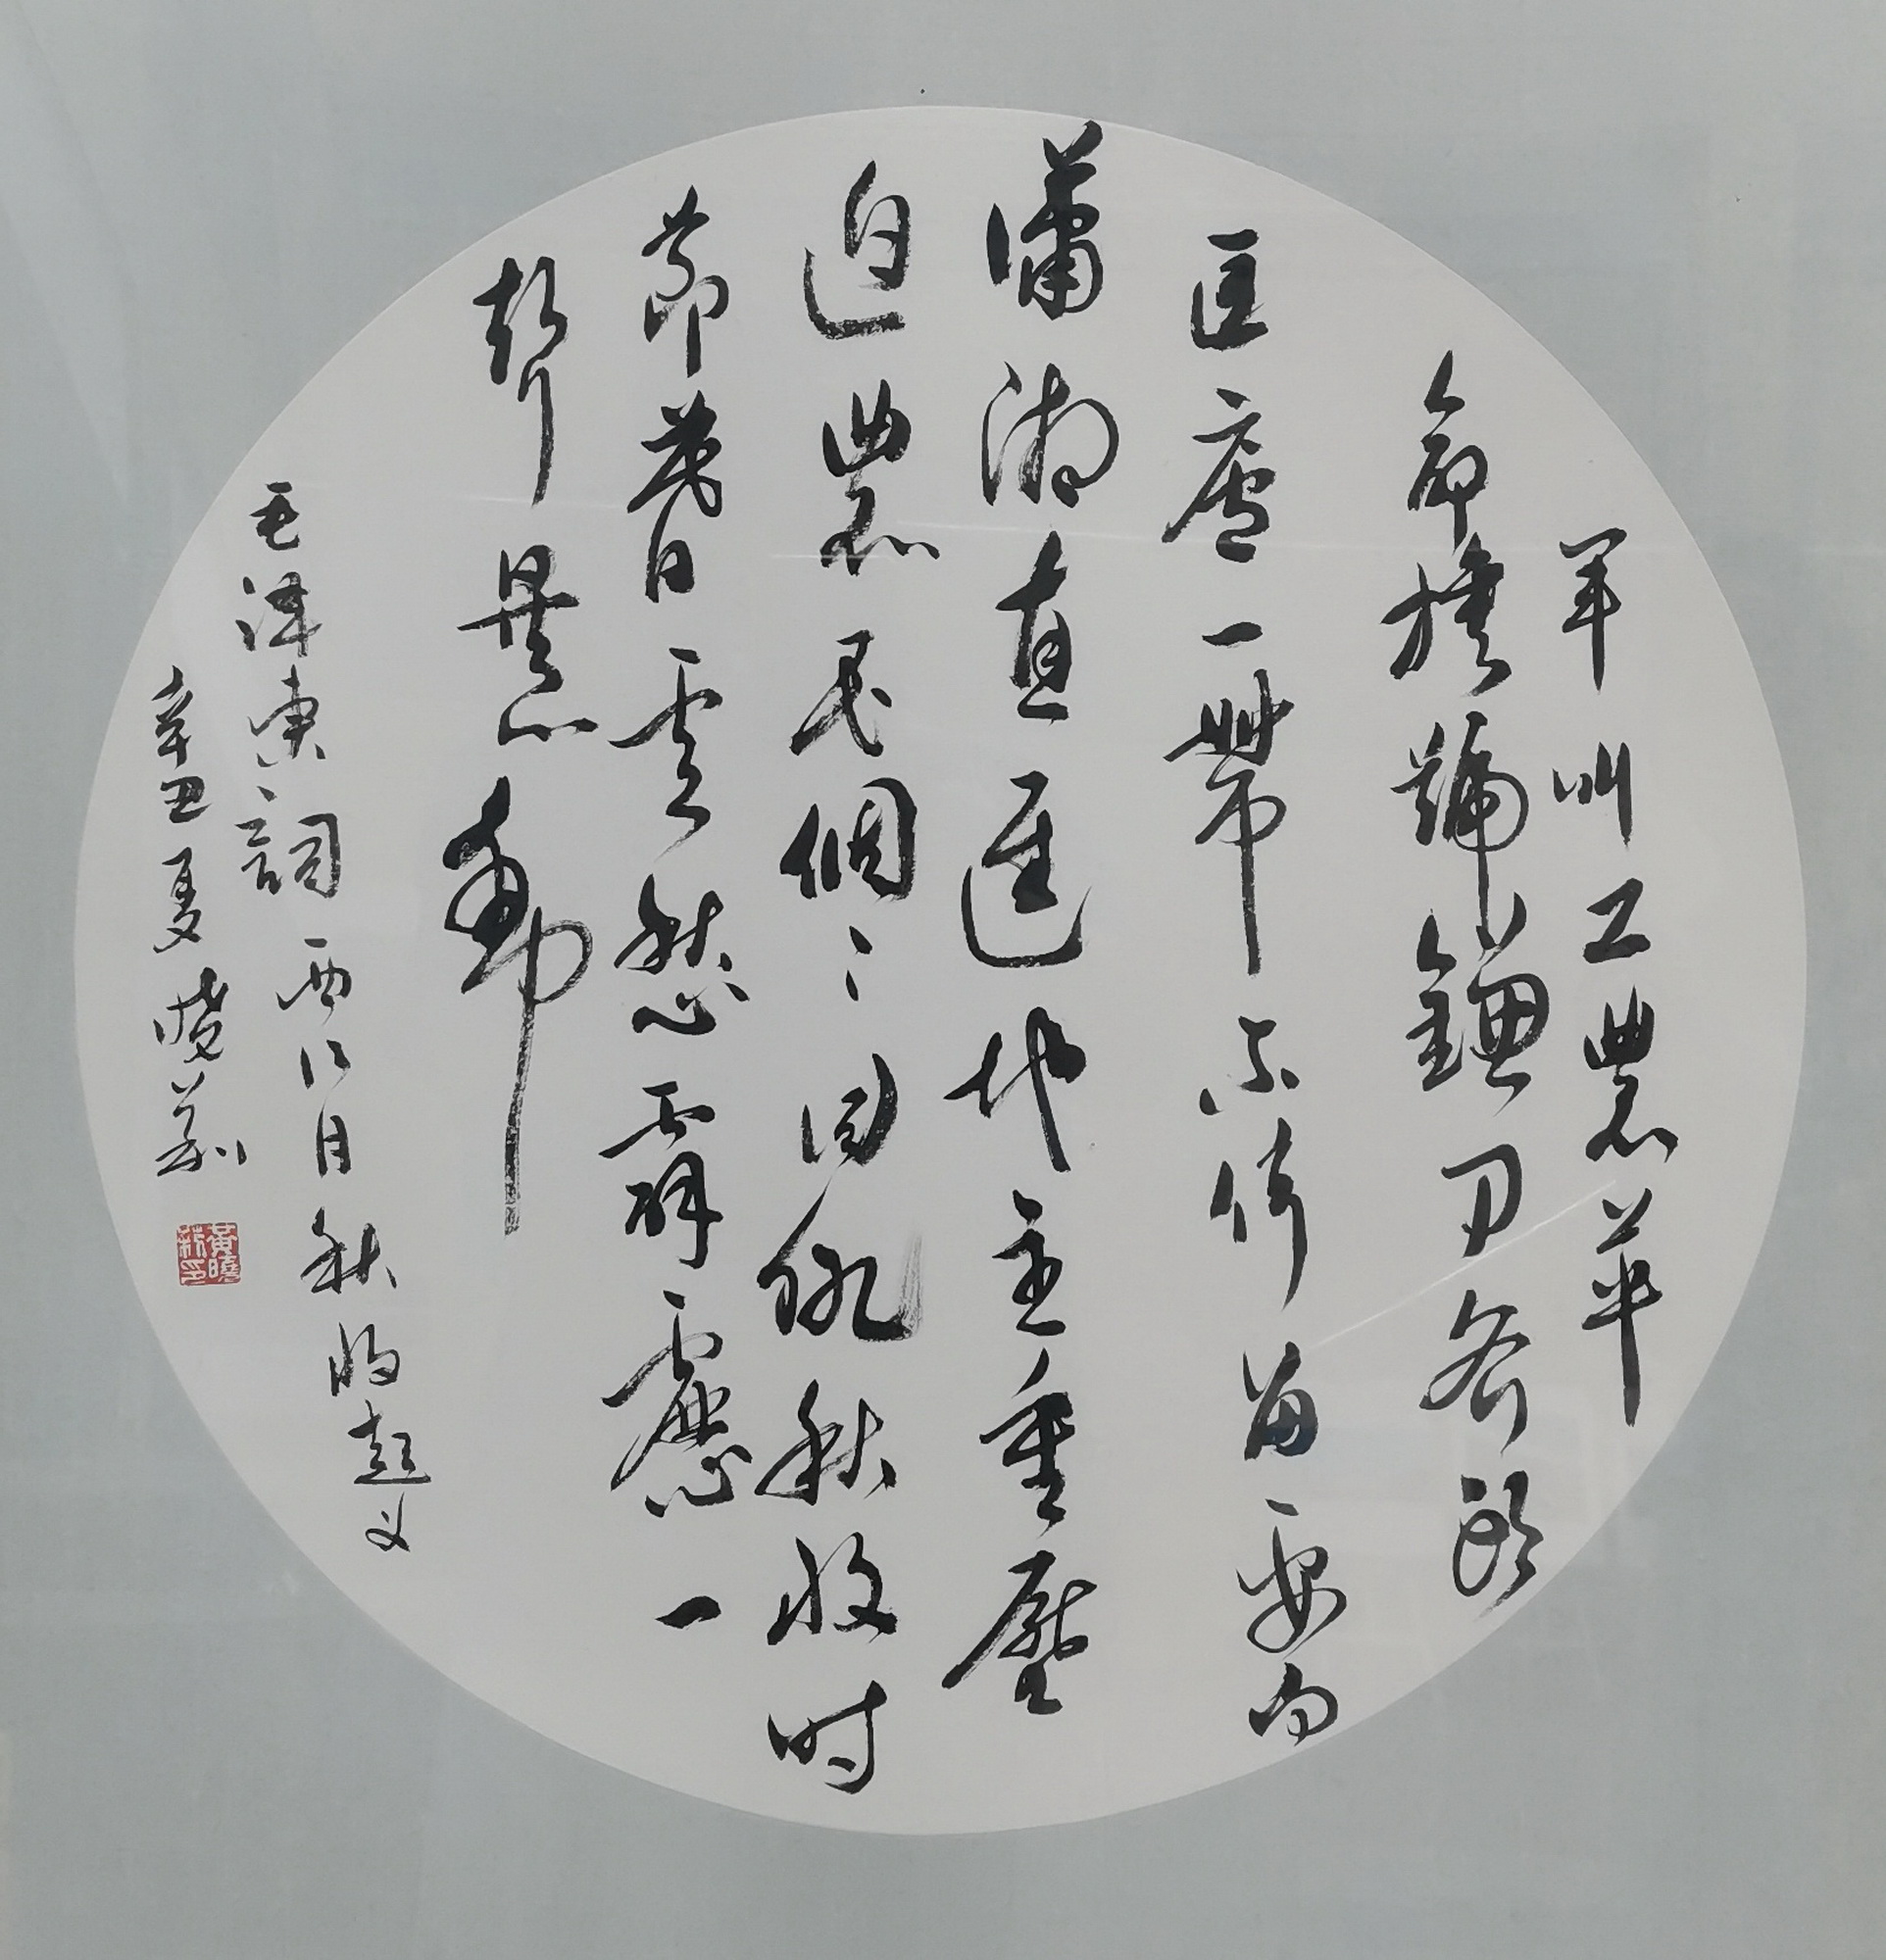 军叫工農革
命旗號鐮刀斧頭
匡廬一帶不停留要向
瀟湘直進地主重壓
迫農民個〻同仇秋收时
節暮雲愁霹靂一
聲暴動
毛澤東詞西江月秋收起义
辛丑夏曉
黃曉
印